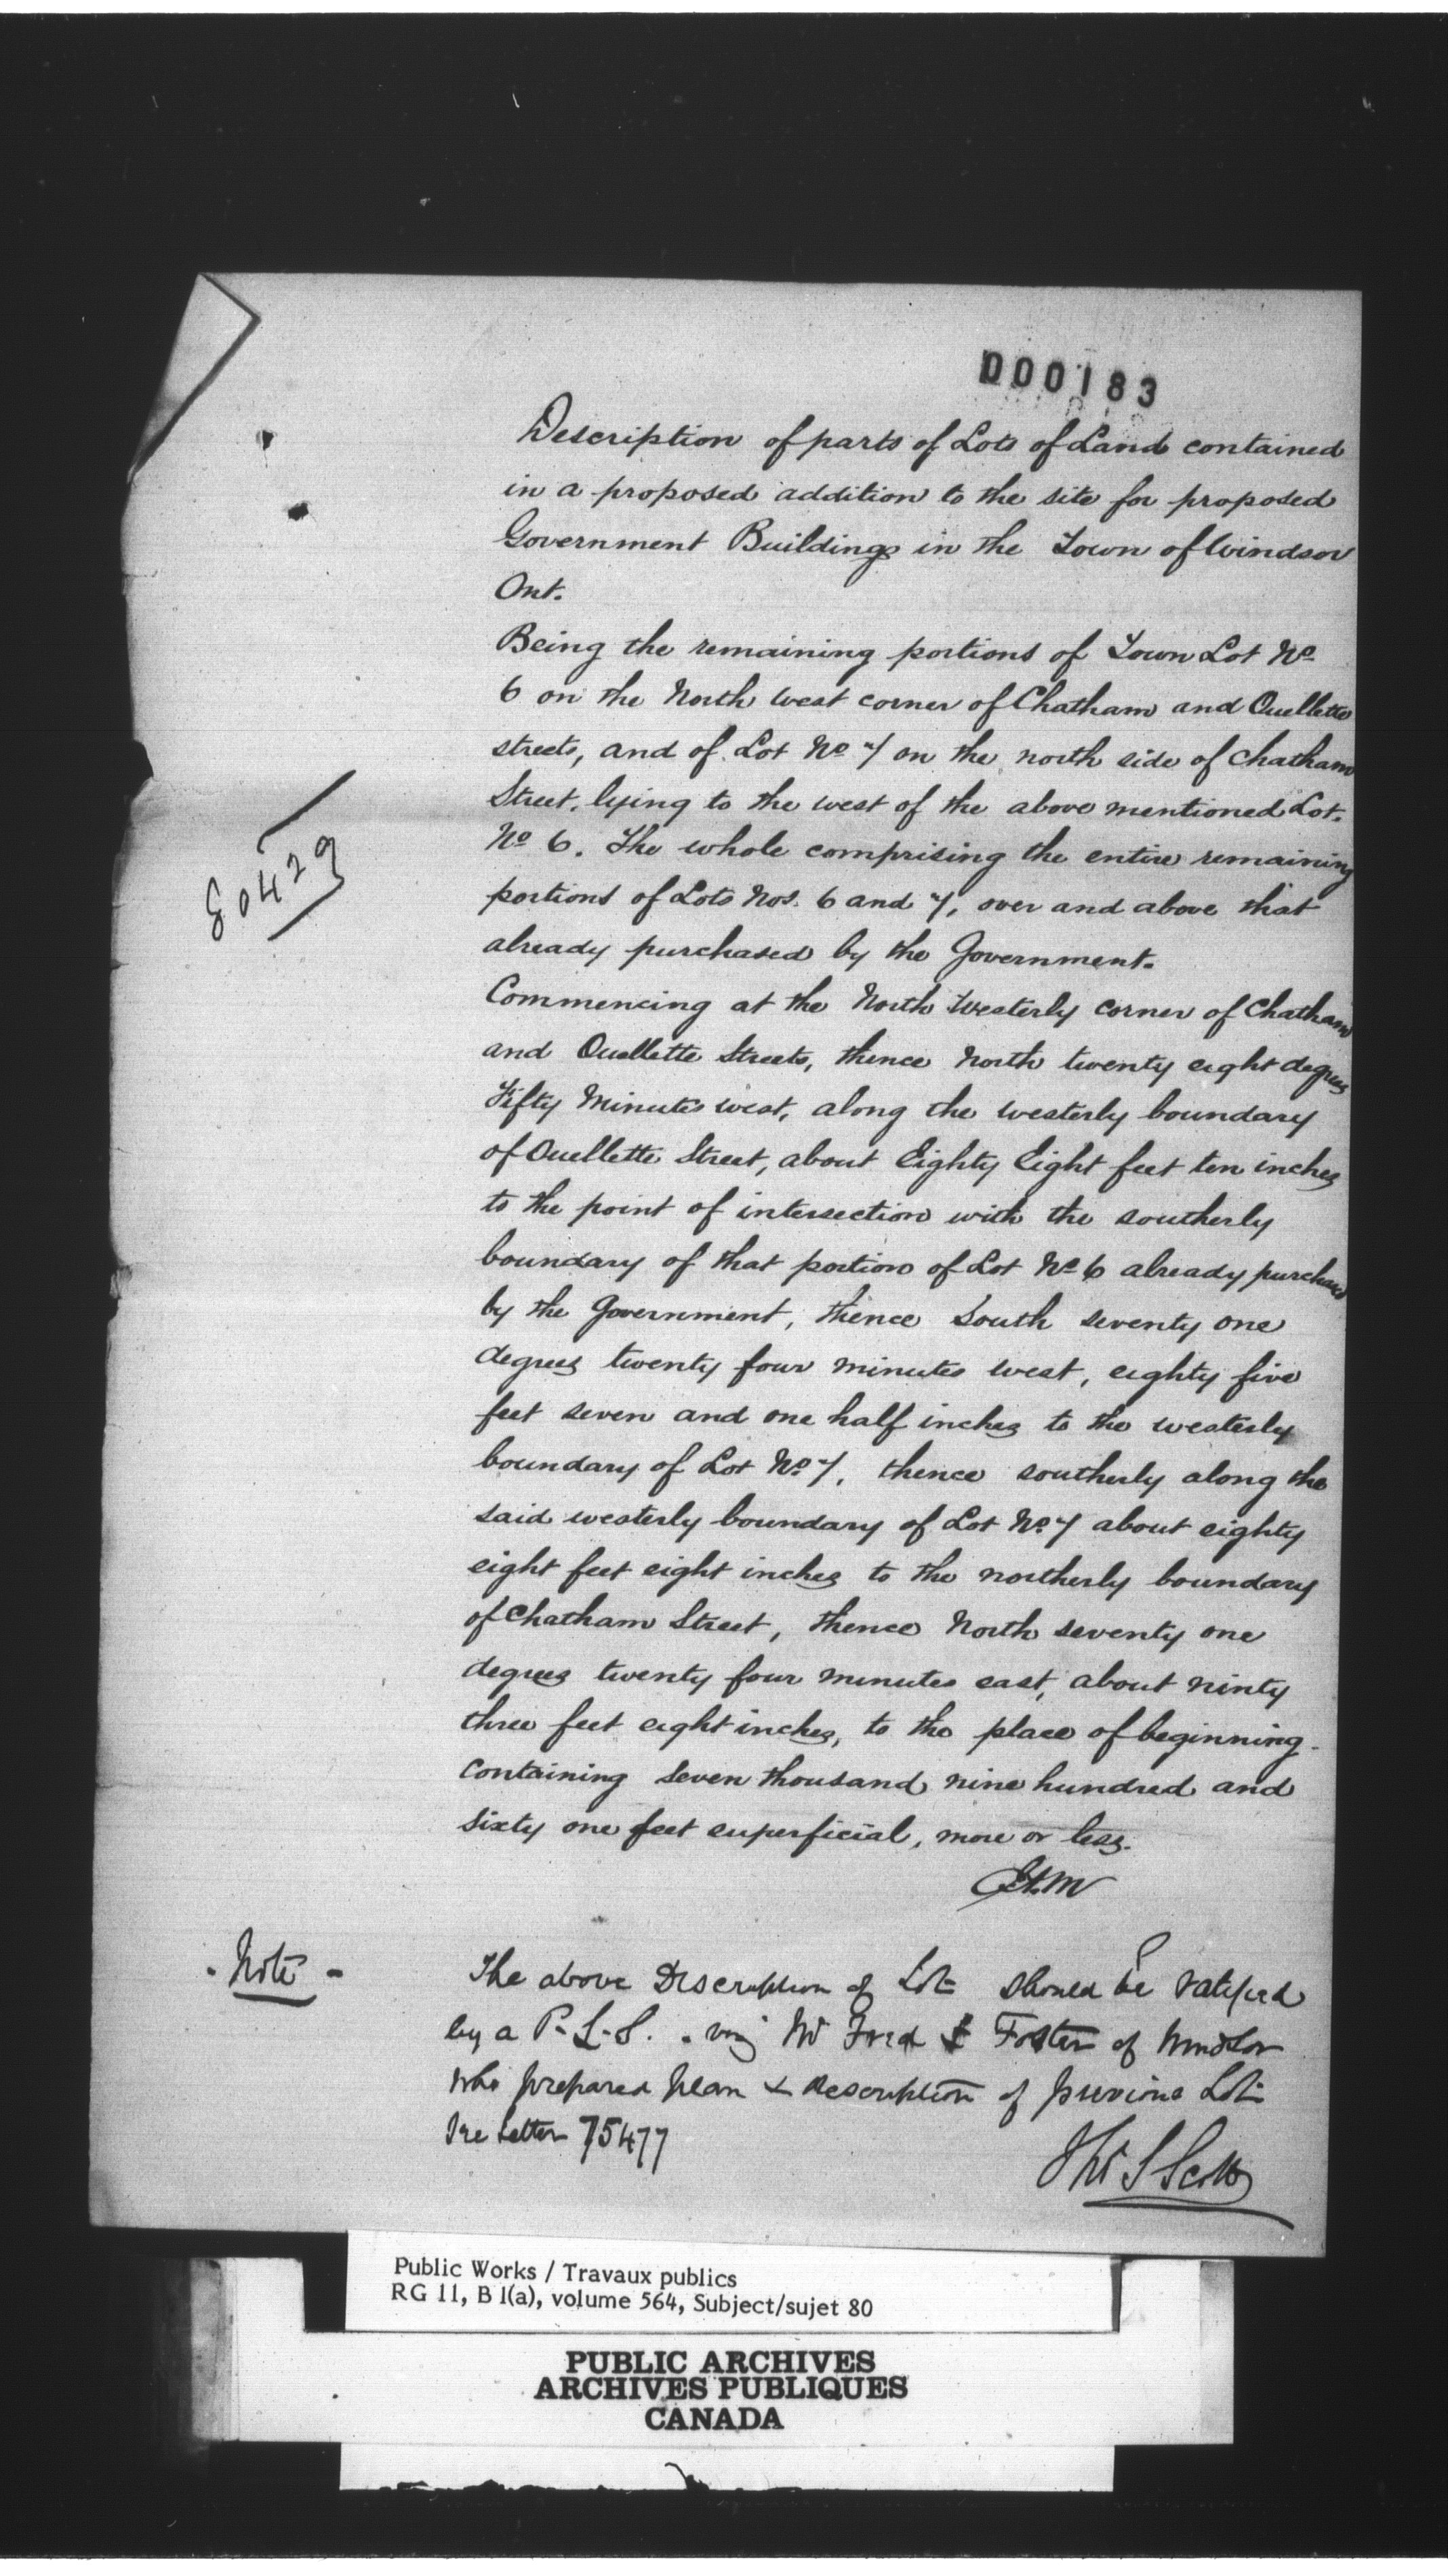 000183
Description of parts of Lots of Land contained
in a proposed addition to the site for proposed
Government Buildings in the Town of Windsor
Ont.
Being the remaining portions of Town Lot No
6 on the North west corner of Chatham and Ouellette
streets, and of Lot No 7 on the north side of Chatham
Street, lying to the west of the above mentioned Lot.
No 6. The whole comprising the entire remaining
80429
portions of Lots Nos. 6 and 7, over and above that
already purchased by the Government.
Commencing at the North Westerly corner of Chatham
and Ouellette Streets, thence North twenty eight degrees
Fifty Minutes west, along the westerly boundary
of Ouellette Street, about Eighty Eight feet ten inches
to the point of intersection with the southerly
boundary of that portion of Lot No 6 already purchased
by the Government, thence South seventy one
degrees twenty four minutes west, eighty five
feet seven and one half inches to the westerly
boundary of Lot No 7, thence southerly along the
said westerly boundary of Lot No 7 about eighty
eight feet eight inches to the northerly boundary
of Chatham Street, thence North seventy one
degrees twenty four minutes east, about ninty
three feet eight inches, to the place of beginning.
containing seven thousand nine hundred and
sixty one feet superficial, more or less.
- Note -
The above Description of Lot should be ratified
by a P.L.S. . viz Mr Fred Foster of Windsor
who prepared plan & description of previous Lot
See Letter 75477
Thos S Scott
Public Works / Travaux publics
RG 11, B 1(a), volume 564, Subject/sujet 80
PUBLIC ARCHIVES
ARCHIVES PUBLIQUES
CANADA